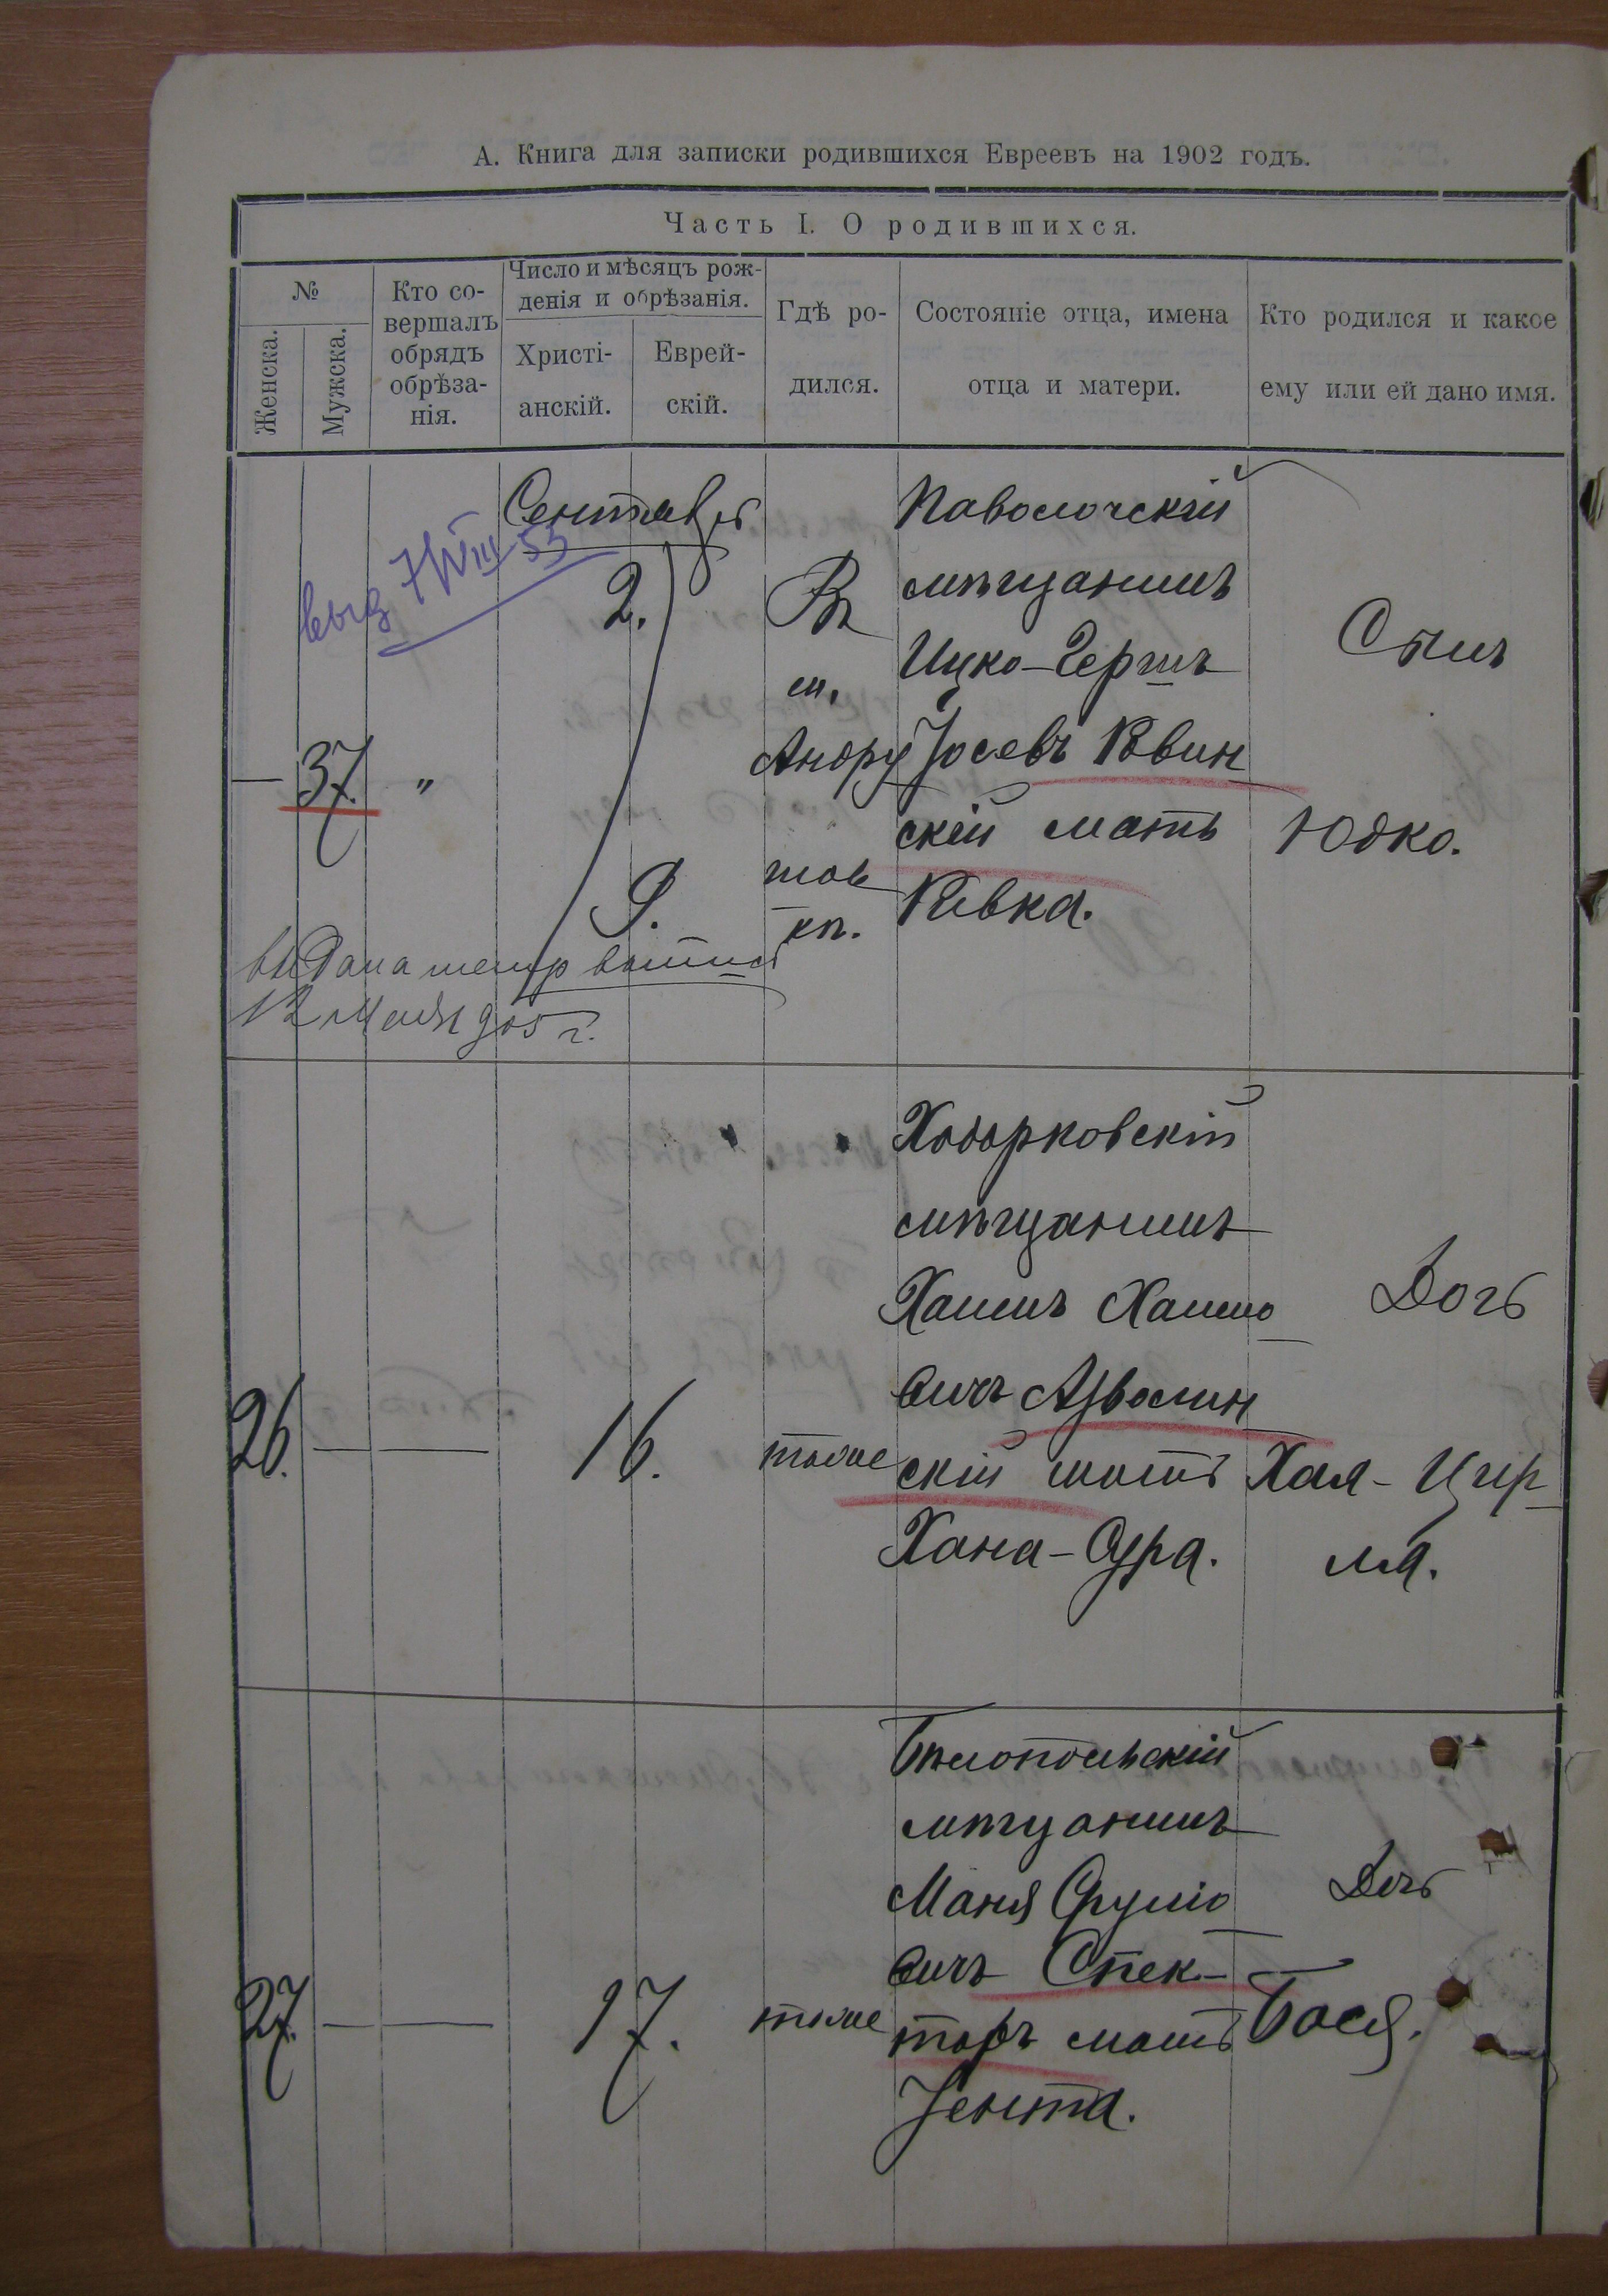 А. Книга для записки родившихся Евреевъ на 1902 годъ.
Часть I. О родившихся.
№
Женска.
Мужска.
Кто со-
вершалъ
обрядъ
обрѣза-
нія.
Число и мѣсяцъ рож-
денія и обрѣзанія.
Христі-
анскій.
Еврей-
скій.
Гдѣ ро-
дился.
Состояніе отца, имена
отца и матери.
Кто родился и какое
ему или ей дано имя.
Сентябрь
выд 7/VIII 53
— 37. "
2.
9.
Въ
м.
Андру
шов
кѣ.
Паволочскій
мѣщанинъ
Ицко-Гершъ
Іосевъ Ровин
скій мать
Ривка.
Сынъ
Юдко.
выдана метр выпись
12 905 г.
26. — —
16.
тоже
Ходорковскій
мѣщанинъ
Хаимъ Хаимо
вичъ Азволин
скій мать
Хана-Сура.
Дочь
Хая-Цир
ля.
27. — —
17.
тоже
Бѣлопольскій
мѣщанинъ
Маня Срулю
вичъ Спек-
торъ мать
Іента.
Дочь
Бася.